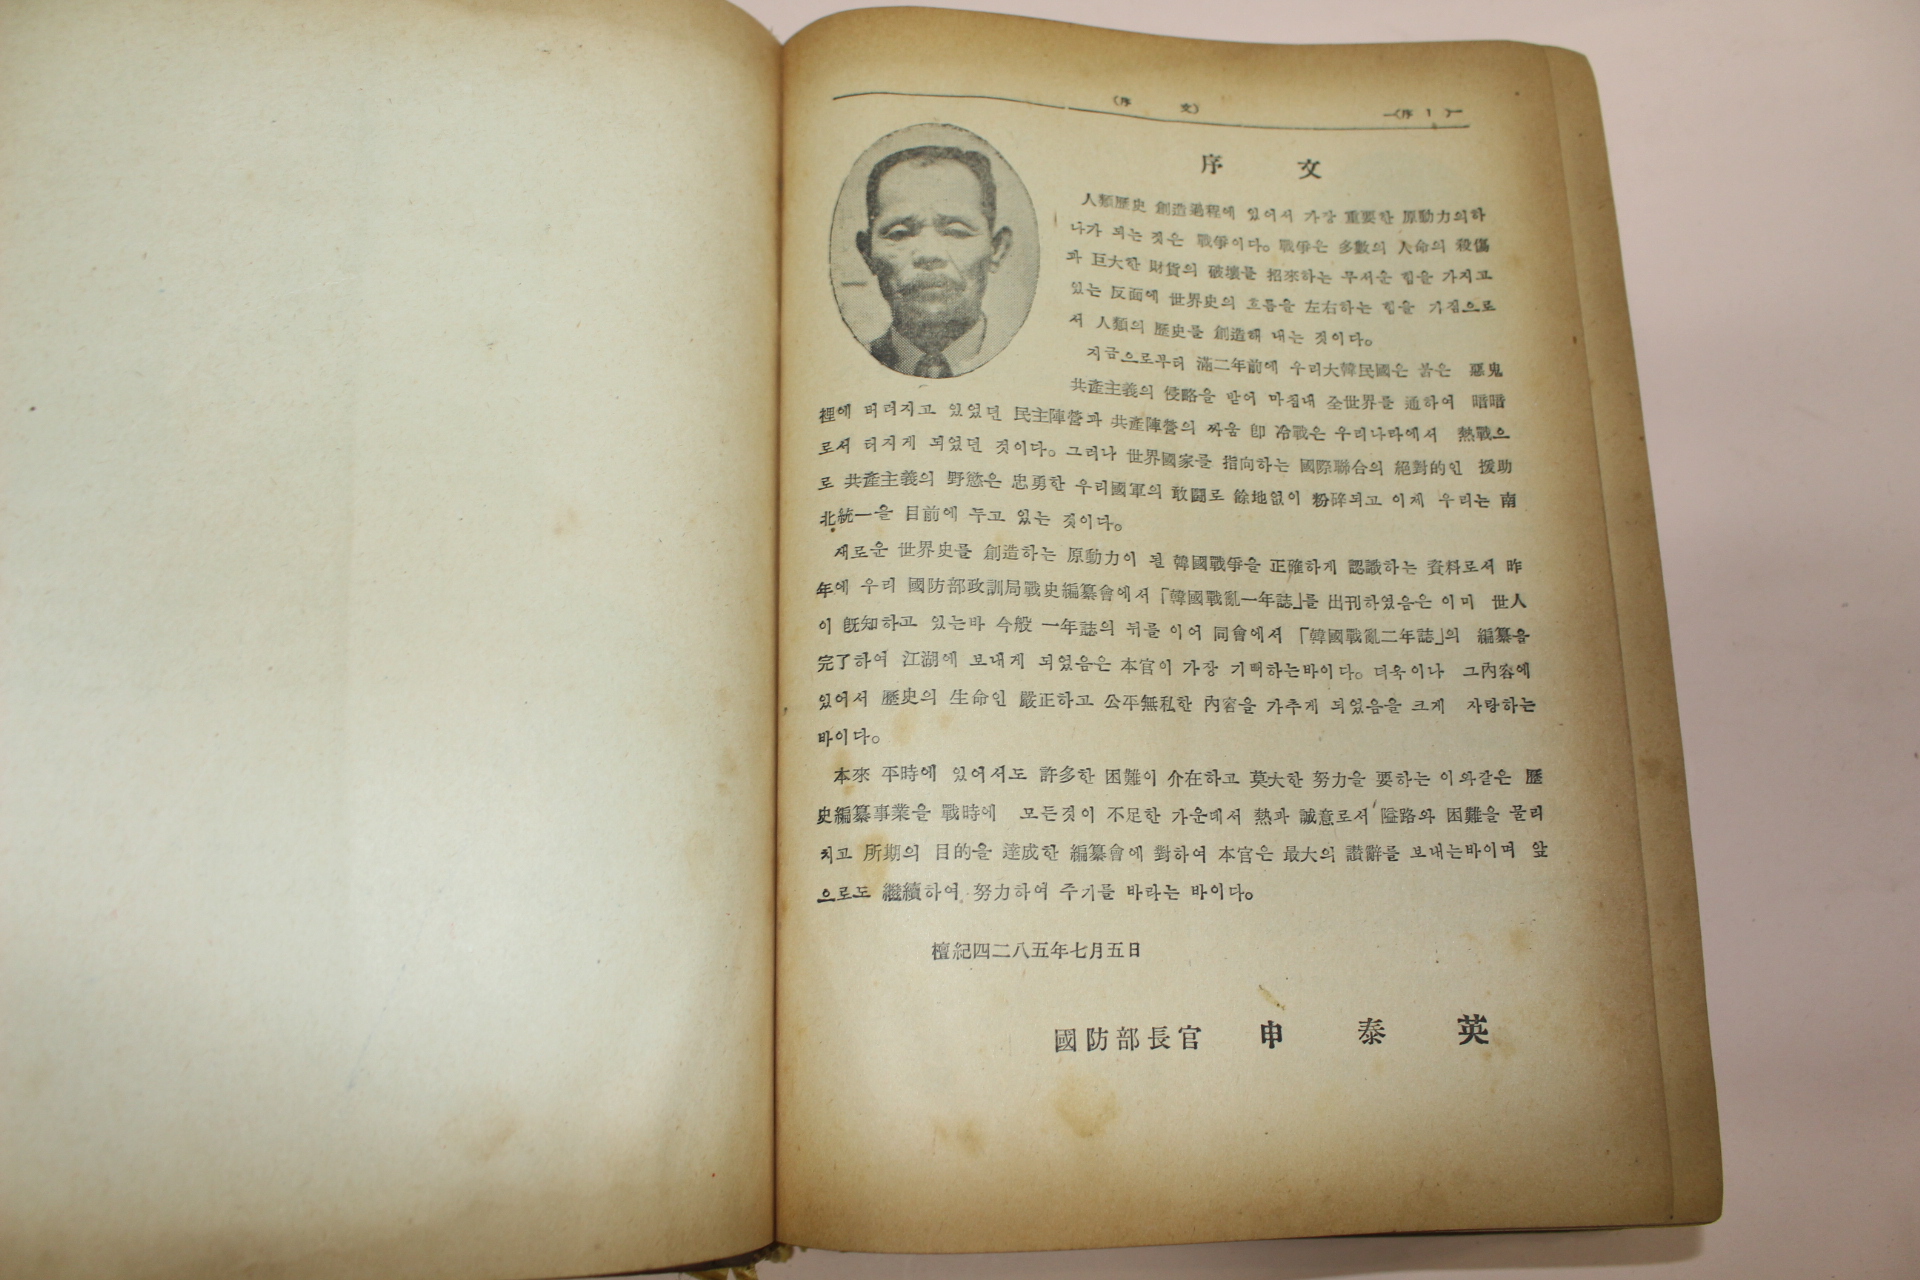 (序 文)
(序 1)
序 文
人類歷史 創造過程에 있어서 가장 重要한 原動力의하
나가 되는 것은 戰爭이다。戰爭은 多數의 人命의 殺傷
과 巨大한 財貨의 破壞를 招來하는 무서운 힘을 가지고
있는 反面에 世界史의 흐름을 左右하는 힘을 가짐으로
서 人類의 歷史를 創造해 내는 것이다。
지금으로부터 滿二年前에 우리大韓民國은 붉은 惡鬼
共產主義의 侵略을 받어 마침내 全世界를 通하여 暗暗
裡에 버러지고 있었던 民主陣營과 共產陣營의 싸움 卽 冷戰은 우리나라에서 熱戰으
로서 터지게 되었던 것이다。그러나 世界國家를 指向하는 國際聯合의 絕對的인 援助
로 共產主義의 野慾은 忠勇한 우리國軍의 敢鬪로 餘地없이 粉碎되고 이제 우리는 南
北統一을 目前에 두고 있는 것이다。
새로운 世界史를 創造하는 原動力이 될 韓國戰爭을 正確하게 認識하는 資料로서 昨
年에 우리 國防部政訓局戰史編纂會에서「韓國戰亂一年誌」를 出刊하였음은 이미 世人
이 旣知하고 있는바 今般 一年誌의 뒤를 이어 同會에서「韓國戰亂二年誌」의 編纂을
完了하여 江湖에 보내게 되었음은 本官이 가장 기뻐하는바이다。더욱이나 그內容에
있어서 歷史의 生命인 嚴正하고 公平無私한 內容을 가추게 되었음을 크게 자랑하는
바이다。
本來 平時에 있어서도 許多한 困難이 介在하고 莫大한 努力을 要하는 이와같은 歷
史編纂事業을 戰時에 모든것이 不足한 가운데서 熱과 誠意로서 隘路와 困難을 물리
치고 所期의 目的을 達成한 編纂會에 對하여 本官은 最大의 讚辭를 보내는바이며 앞
으로도 繼續하여 努力하여 주기를 바라는 바이다。
檀紀四二八五年七月五日
國防部長官 申 泰 英